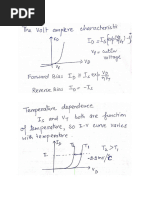 The Volt ampere characteristic
I_D
I_D = I_S
V_D
V_γ = cutin
voltage
Forward Bias I_D ≅ I_S exp
Reverse Bias I_D = -I_S
Temperature dependence
I_S and V_T both are function
of temperature, so I-V curve varies
with temperature
I_D
T_2 T_1
T_2 > T_1
V_D